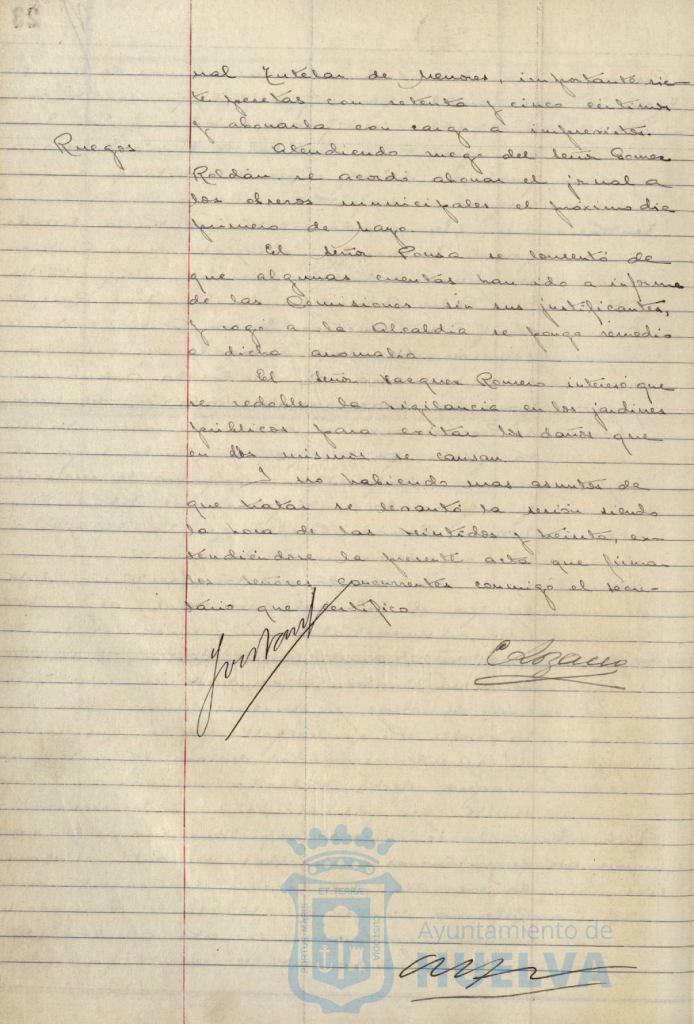 nal Tutelar de Menores, importante sie-
te pesetas con setenta y cinco centimos
y abonarla con cargo a imprevistos.
Ruegos
Atendiendo ruego del señor Gomez
Roldán, se acordó abonar el jornal a
los obreros municipales el próximo dia
primero de Mayo.
El señor Ponsa se lamentó de
que algunas cuentas han ido a informe
de las Comisiones sin sus justificantes,
y rogó a la Alcaldia se ponga remedio
a dicha anomalia
El señor Vazquez Romero interesó que
se redoble la vigilancia en los jardines
públicos para evitar los daños que
en los mismos se causan.
Y no habiendo mas asuntos de
que tratar se levantó la sesión siendo
la hora de las veintidos y treinta, ex-
tendiéndose la presente acta que firman
los señores concurrentes conmigo el secre-
tario que certifico
C Lozano
ET TERRÆ
PORTUS MARIS
CUSTODIA
Ayuntamiento de
HUELVA